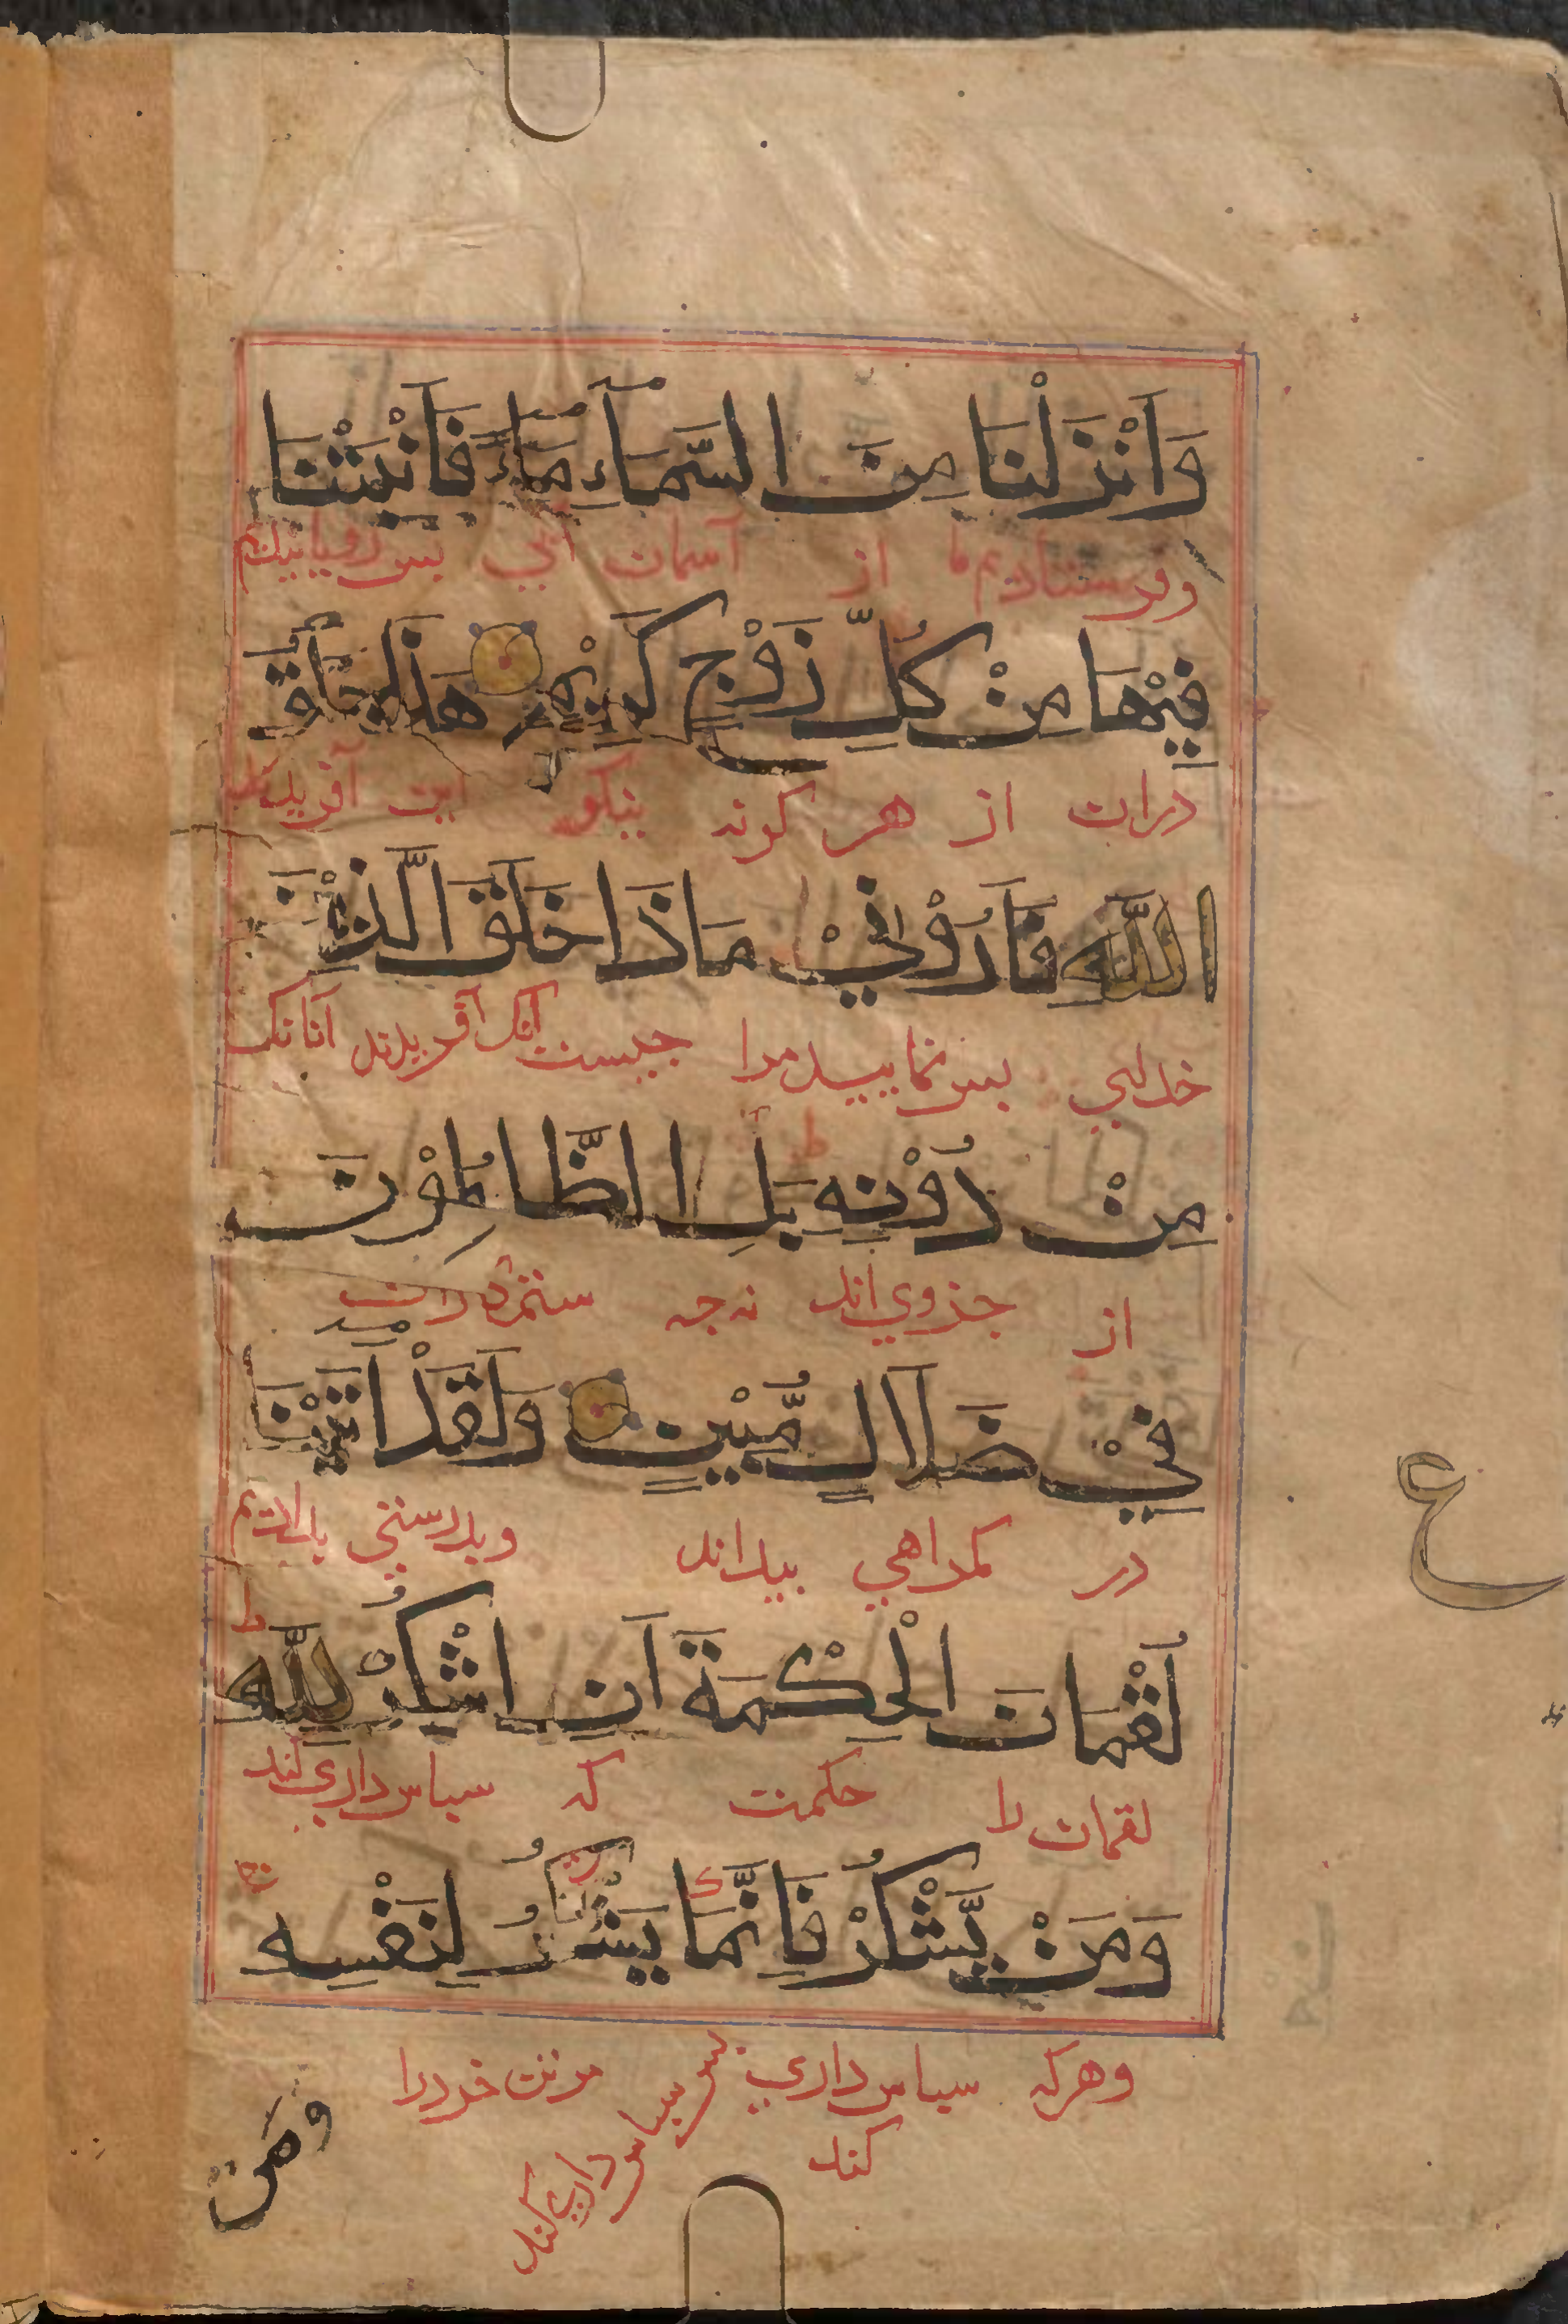 وَاَنْزَلْنَا مِنَ السَّمَآءِ مَآءً فَاَنْبَتْنَا
وفرستاديم ما از آسمان آبي بس رويانيديم
فِيْهَا مِنْ كُلِّ زَوْجٍ كَرِيْمٍ هٰذَا خَلْقُ
دران از هر كونه نيكو اين آفريدن
اللّٰهِ فَاَرُوْنِيْ مَاذَا خَلَقَ الَّذِيْنَ
خداي بس نماييد مرا جيست آنك آفريدند آنانك
مِنْ دُوْنِهٖ بَلِ الظَّالِمُوْنَ
از جزوي اند نه جه ستمكاران
فِيْ ضَلَالٍ مُّبِيْنٍ وَلَقَدْ اٰتَيْنَا
در كمراهي بيدااند وبدرستي بداديم
لُقْمَانَ الْحِكْمَةَ اَنِ اشْكُرْ لِلّٰهِ ط
لقمان را حكمت كه سباس داري كند
وَمَنْ يَّشْكُرْ فَاِنَّمَا يَشْكُرُ لِنَفْسِهٖ
وهركه سباس داري كند بس سباس داري كند مرتن خودرا
ومن
ع